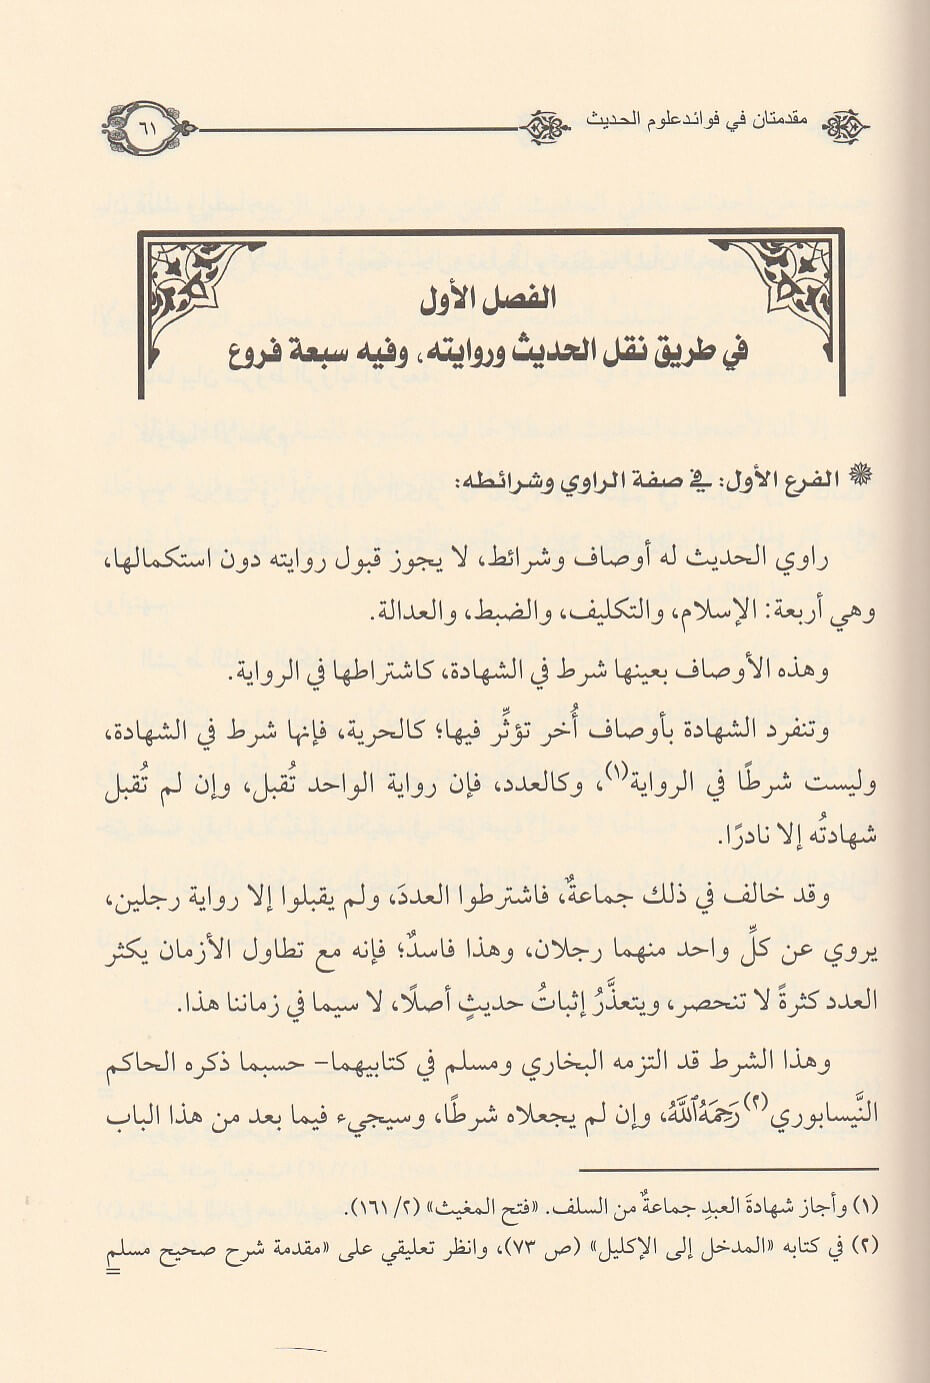 مقدمتان في فوائد علوم الحديث
٦١
الفصل الأول
في طريق نقل الحديث وروايته، وفيه سبعة فروع
الفرع الأول: في صفة الراوي وشرائطه:
راوي الحديث له أوصاف وشرائط، لا يجوز قبول روايته دون استكمالها،
وهي أربعة: الإسلام، والتكليف، والضبط، والعدالة.
وهذه الأوصاف بعينها شرط في الشهادة، كاشتراطها في الرواية.
وتنفرد الشهادة بأوصاف أُخر تؤثِّر فيها؛ كالحرية، فإنها شرط في الشهادة،
وليست شرطًا في الرواية(١)، وكالعدد، فإن رواية الواحد تُقبل، وإن لم تُقبل
شهادتُه إلا نادرًا.
وقد خالف في ذلك جماعةٌ، فاشترطوا العددَ، ولم يقبلوا إلا رواية رجلين،
يروي عن كلِّ واحد منهما رجلان، وهذا فاسدٌ؛ فإنه مع تطاول الأزمان يكثر
العدد كثرةً لا تنحصر، ويتعذَّرُ إثباتُ حديثٍ أصلًا، لا سيما في زماننا هذا.
وهذا الشرط قد التزمه البخاري ومسلم في كتابيهما– حسبما ذكره الحاكم
النَّيسابوري(٢) رَحِمَهُ ٱللَّهُ، وإن لم يجعلاه شرطًا، وسيجيء فيما بعد من هذا الباب
(١) وأجاز شهادةَ العبدِ جماعةٌ من السلف. «فتح المغيث» (٢/ ١٦١).
(٢) في كتابه «المدخل إلى الإكليل» (ص ٧٣)، وانظر تعليقي على «مقدمة شرح صحيح مسلم =